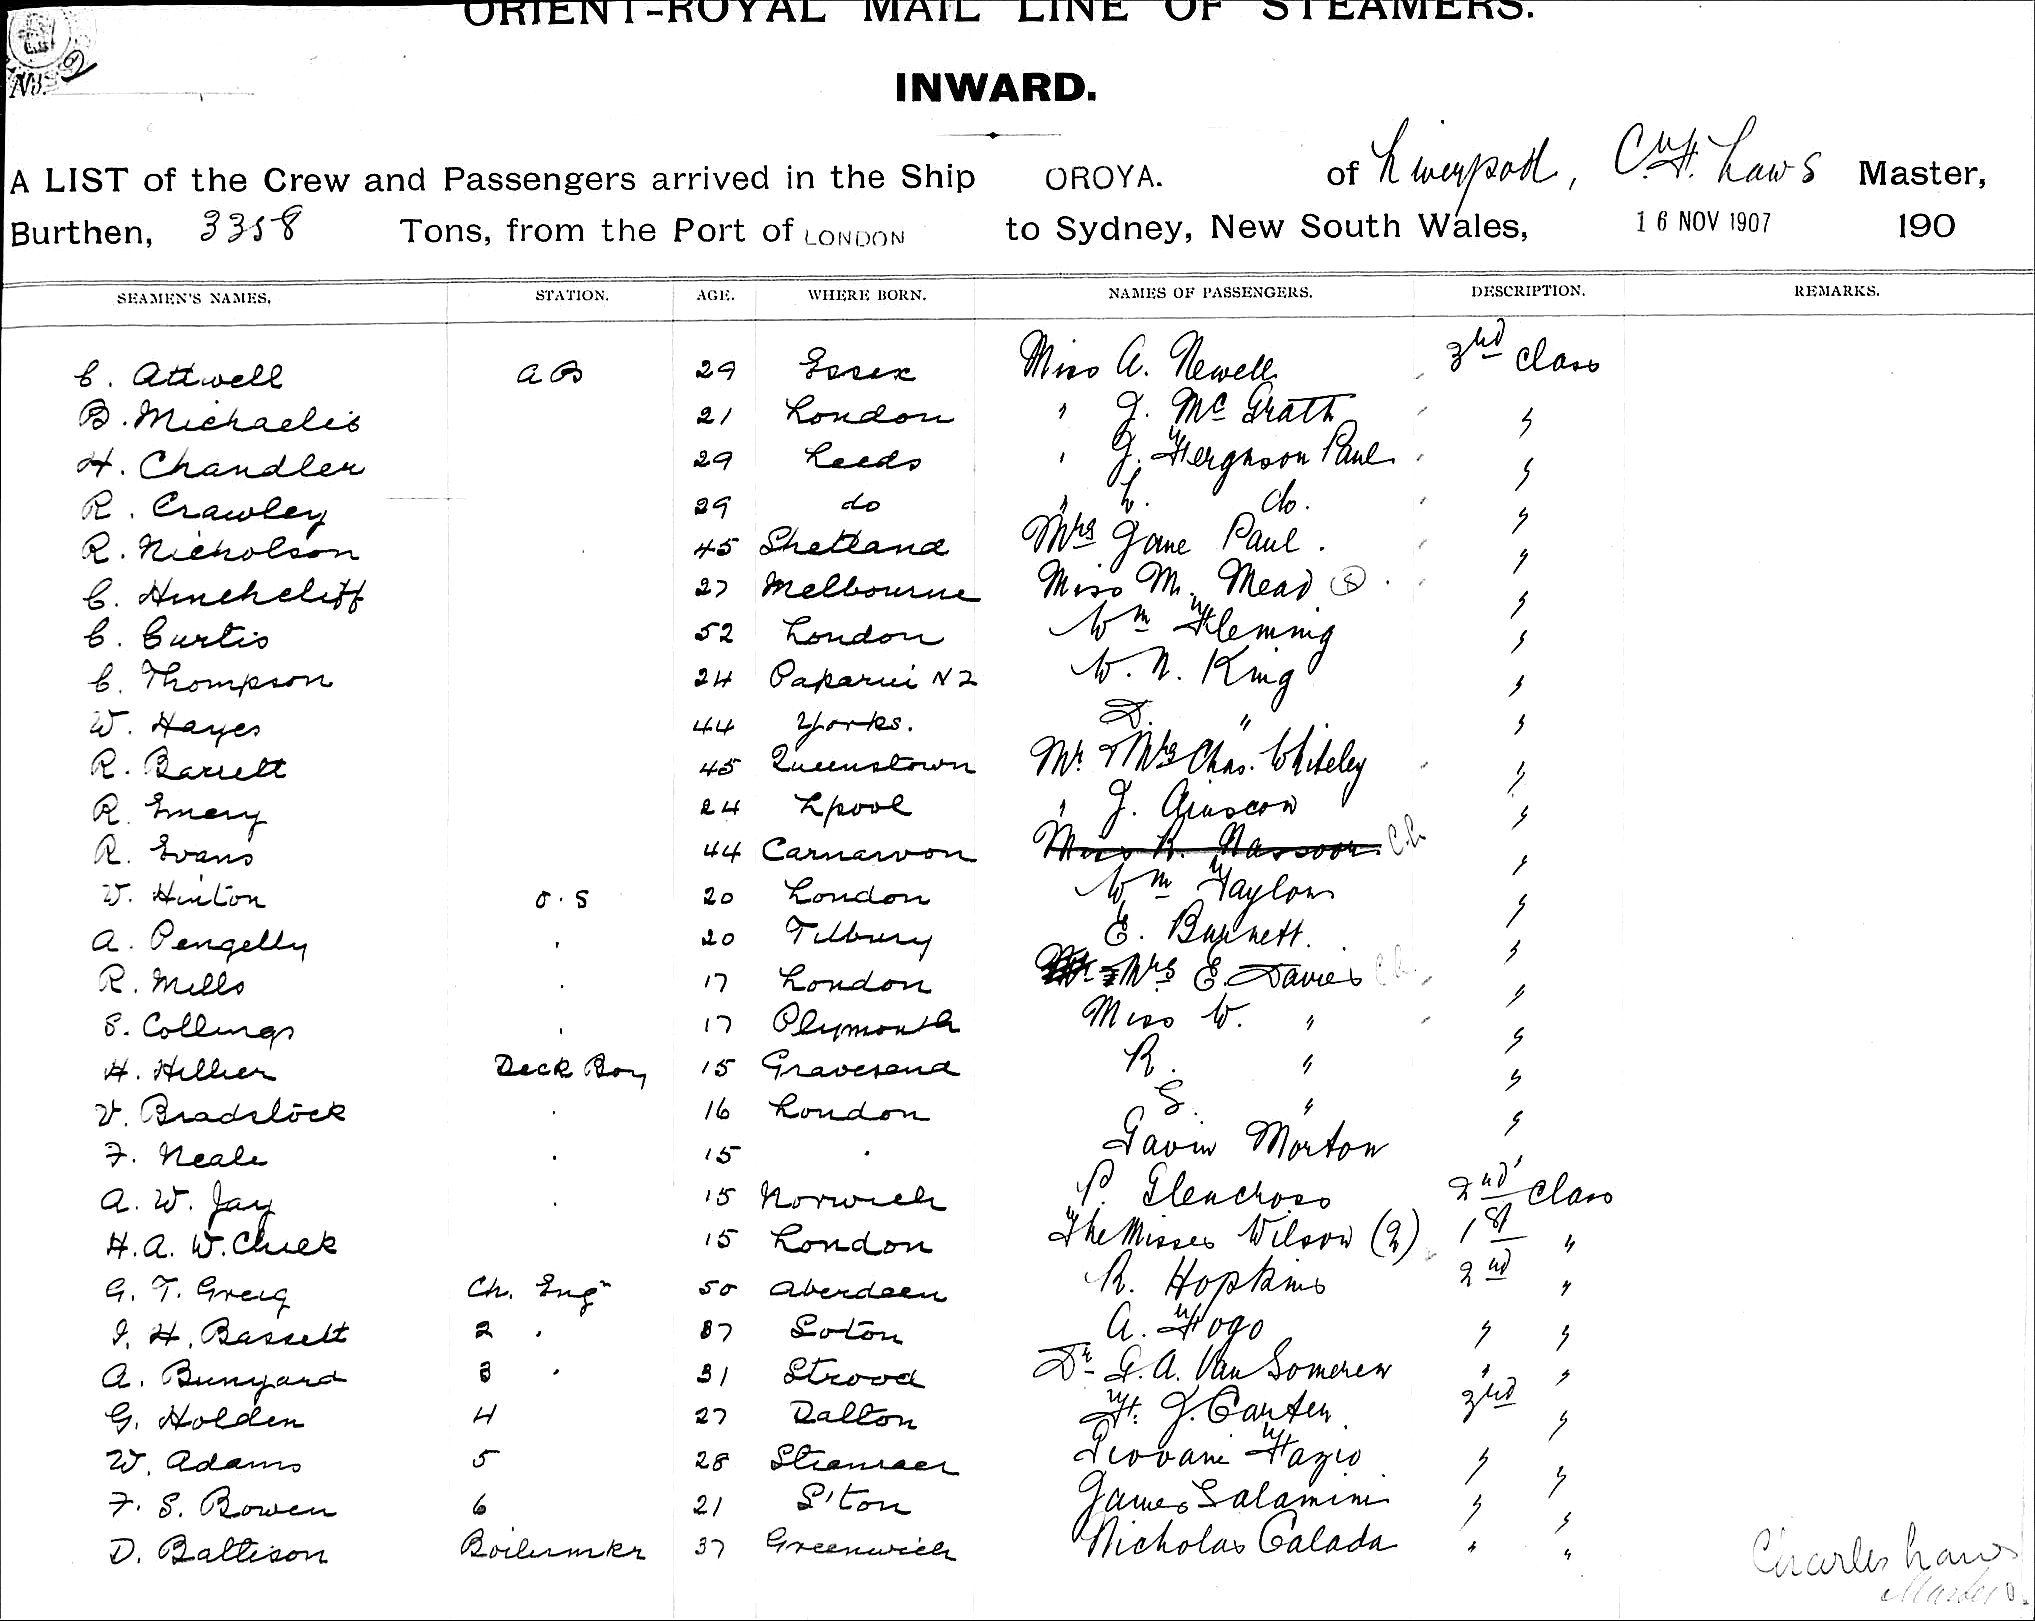 ORIENT-ROYAL MAIL LINE OF STEAMERS.
No.
INWARD.
A LIST of the Crew and Passengers arrived in the Ship OROYA. of Liverpool, C. H. Laws Master,
Burthen, 3358 Tons, from the Port of LONDON to Sydney, New South Wales, 16 NOV 1907 190
SEAMEN'S NAMES. STATION. AGE. WHERE BORN. NAMES OF PASSENGERS. DESCRIPTION. REMARKS.
C. Attwell A B 29 Essex Miss A. Newell 3rd Class
B. Michaelis 21 London " J. McGrath "
H. Chandler 29 Leeds " J. Ferguson Paul "
R. Crawley 29 do " L. do. "
R. Nicholson 45 Shetland Mrs Jane Paul. "
C. Hinchcliff 27 Melbourne Miss M. Mead "
C. Curtis 52 London Wm Fleming "
C. Thompson 24 Paparui NZ W. N. King "
W. Hayes 44 Yorks. D. " "
R. Barrett 45 Queenstown Mr & Mrs Chas. Whiteley "
R. Emery 24 Lpool " J. Ainscow "
R. Evans 44 Carnarvon Miss R. Nassoor "
V. Hinton O.S 20 London Wm Taylor "
A. Pengelly " 20 Tilbury E. Burnett. "
R. Mills " 17 London Mrs E. Davies "
S. Collings " 17 Plymouth Miss W. " "
H. Hillier Deck Boy 15 Gravesend R. " "
V. Bradstock " 16 London G. " "
F. Neale " 15 " Gavin Morton "
A. W. Jay " 15 Norwich P. Glencross 2nd Class
H. A. W. Cheek 15 London The Misses Wilson (2) 1st "
G. T. Greig Ch. Engr 50 Aberdeen R. Hopkins 2nd "
I. H. Bassett 2 " 37 Soton A. Fogo " "
A. Bunyard 3 " 31 Strood Dr G. A. Van Someren " "
G. Holden 4 27 Dalton F. J. Carter 3rd "
W. Adams 5 28 Stranraer Giovani Fazio " "
F. S. Bowen 6 21 S'ton James Salamini " "
D. Battison Boilermkr 37 Greenwich Nicholas Calada " "
Charles Laws
Master